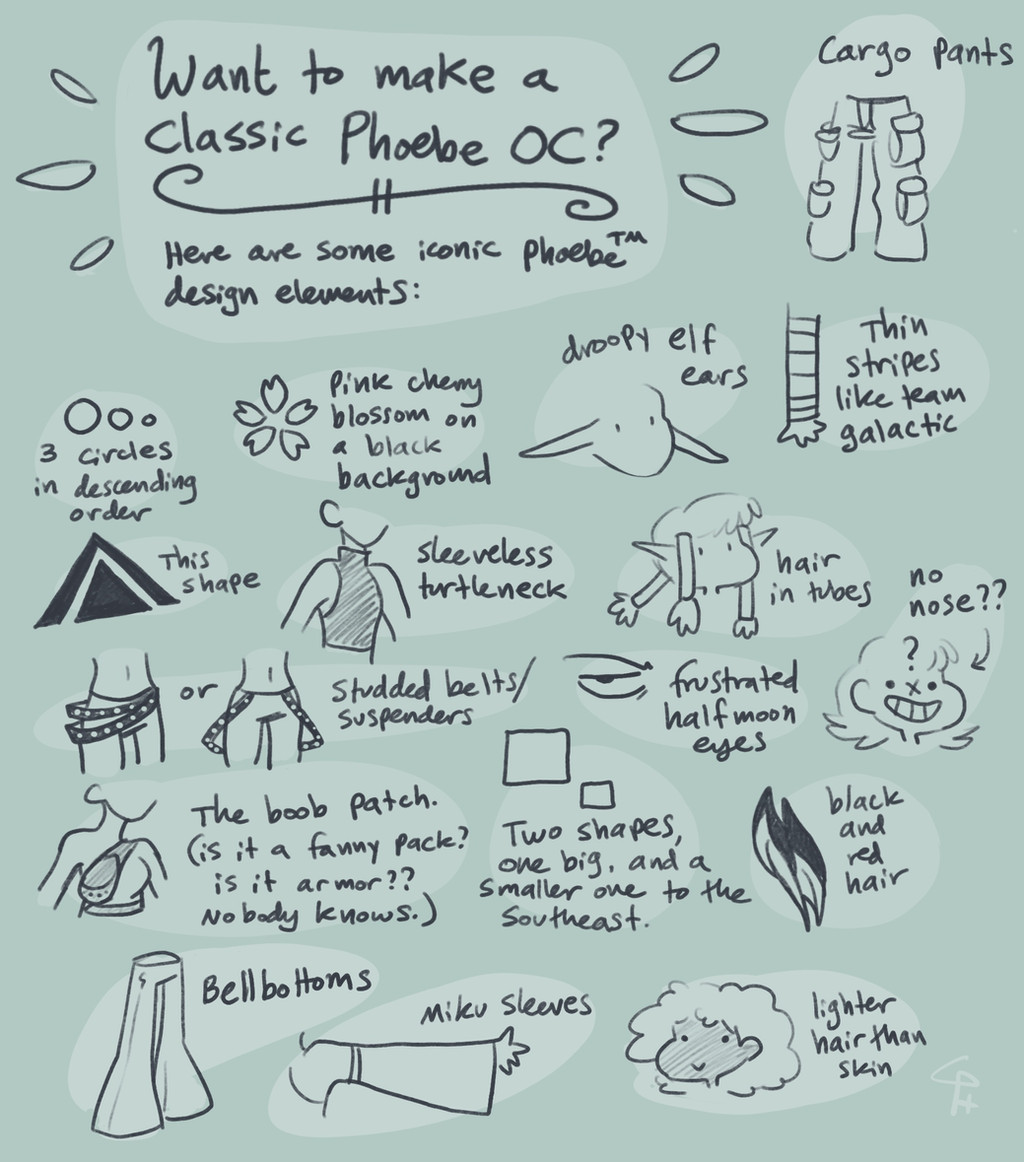 Want to make a
Classic Phoebe OC?
Here are some iconic Phoebe™
design elements:
Cargo pants
droopy elf
ears
Thin
stripes
like team
galactic
3 circles
in descending
order
Pink cherry
blossom on
a black
background
This
shape
sleeveless
turtleneck
hair
in tubes
no
nose??
?
or
Studded belts/
suspenders
frustrated
half moon
eyes
The boob patch.
(is it a fanny pack?
is it armor??
Nobody knows.)
Two shapes,
one big, and a
smaller one to the
Southeast.
black
and
red
hair
Bellbottoms
Miku sleeves
lighter
hair than
skin
CPH